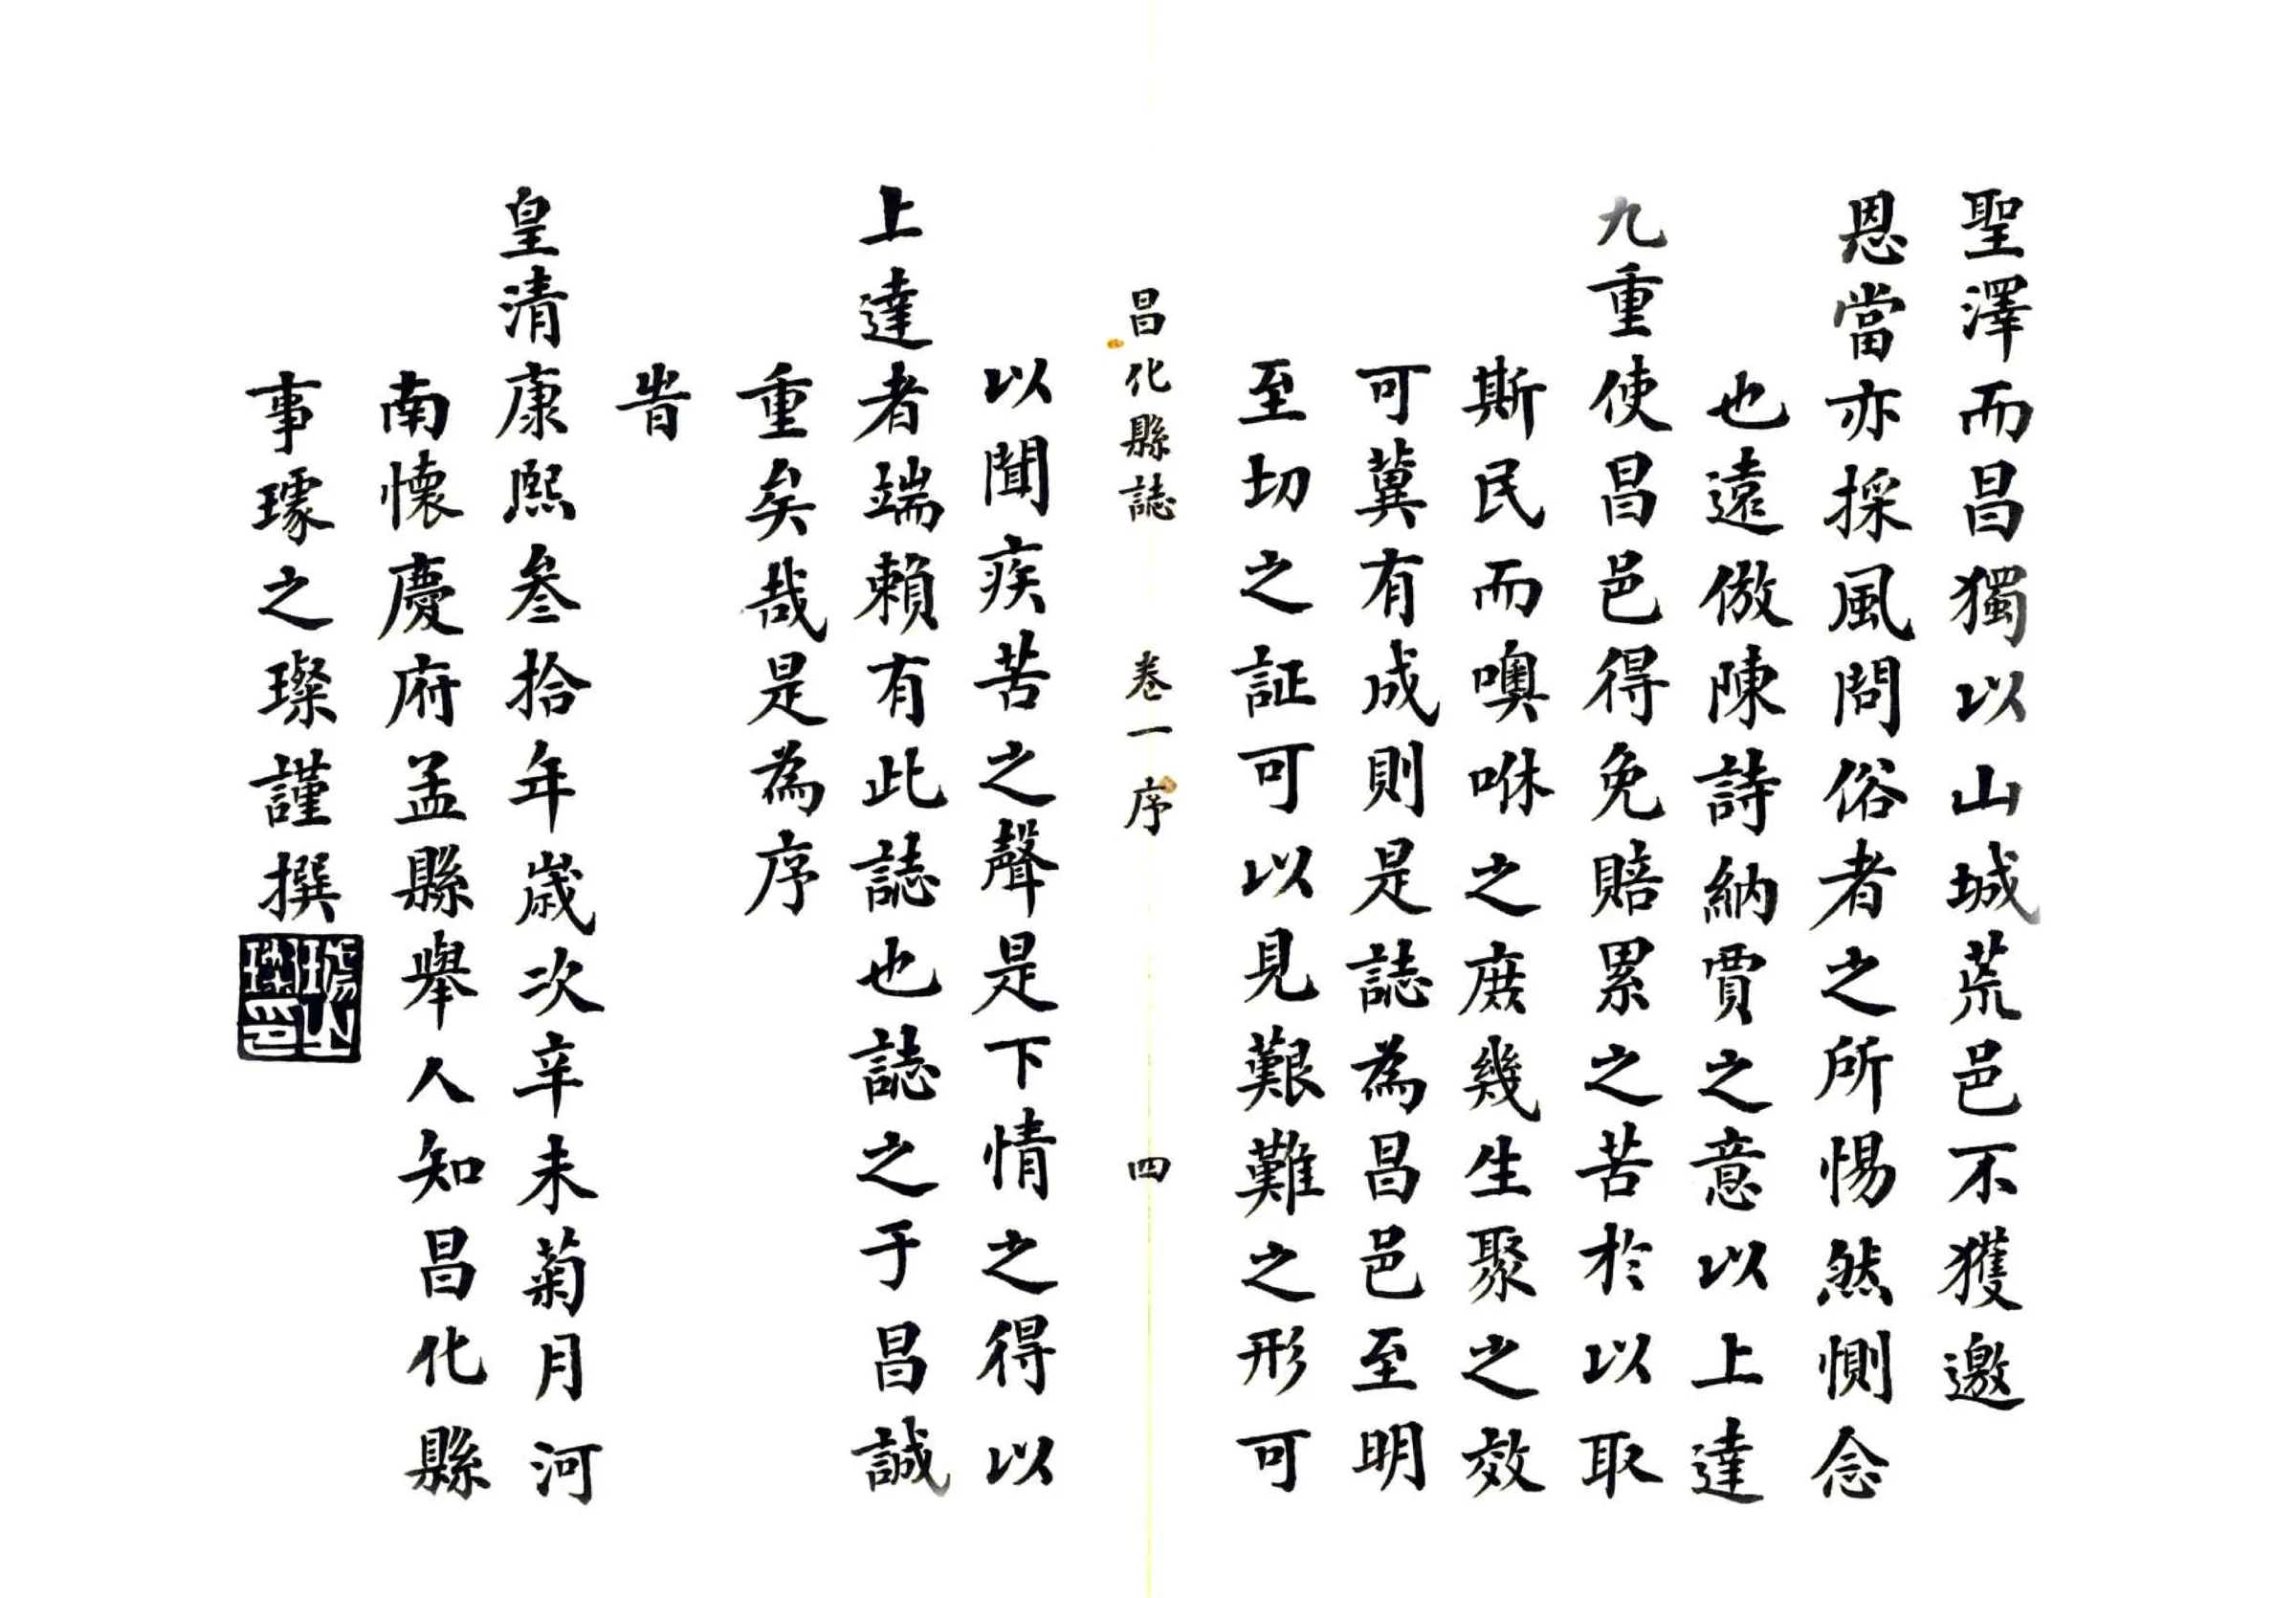 聖澤而昌獨以山城荒邑不獲邀
恩當亦採風問俗者之所惕然惻念
也遠倣陳詩納賈之意以上達
九重使昌邑得免賠累之苦於以取
斯民而噢咻之庶幾生聚之效
可冀有成則是誌為昌邑至明
至切之証可以見艱難之形可
昌化縣誌 卷一 序 四
以聞疾苦之聲是下情之得以
上達者端賴有此誌也誌之于昌誠
重矣哉是為序
旹
皇清康熙叁拾年歲次辛未菊月河
南懷慶府孟縣舉人知昌化縣
事璩之璨謹撰